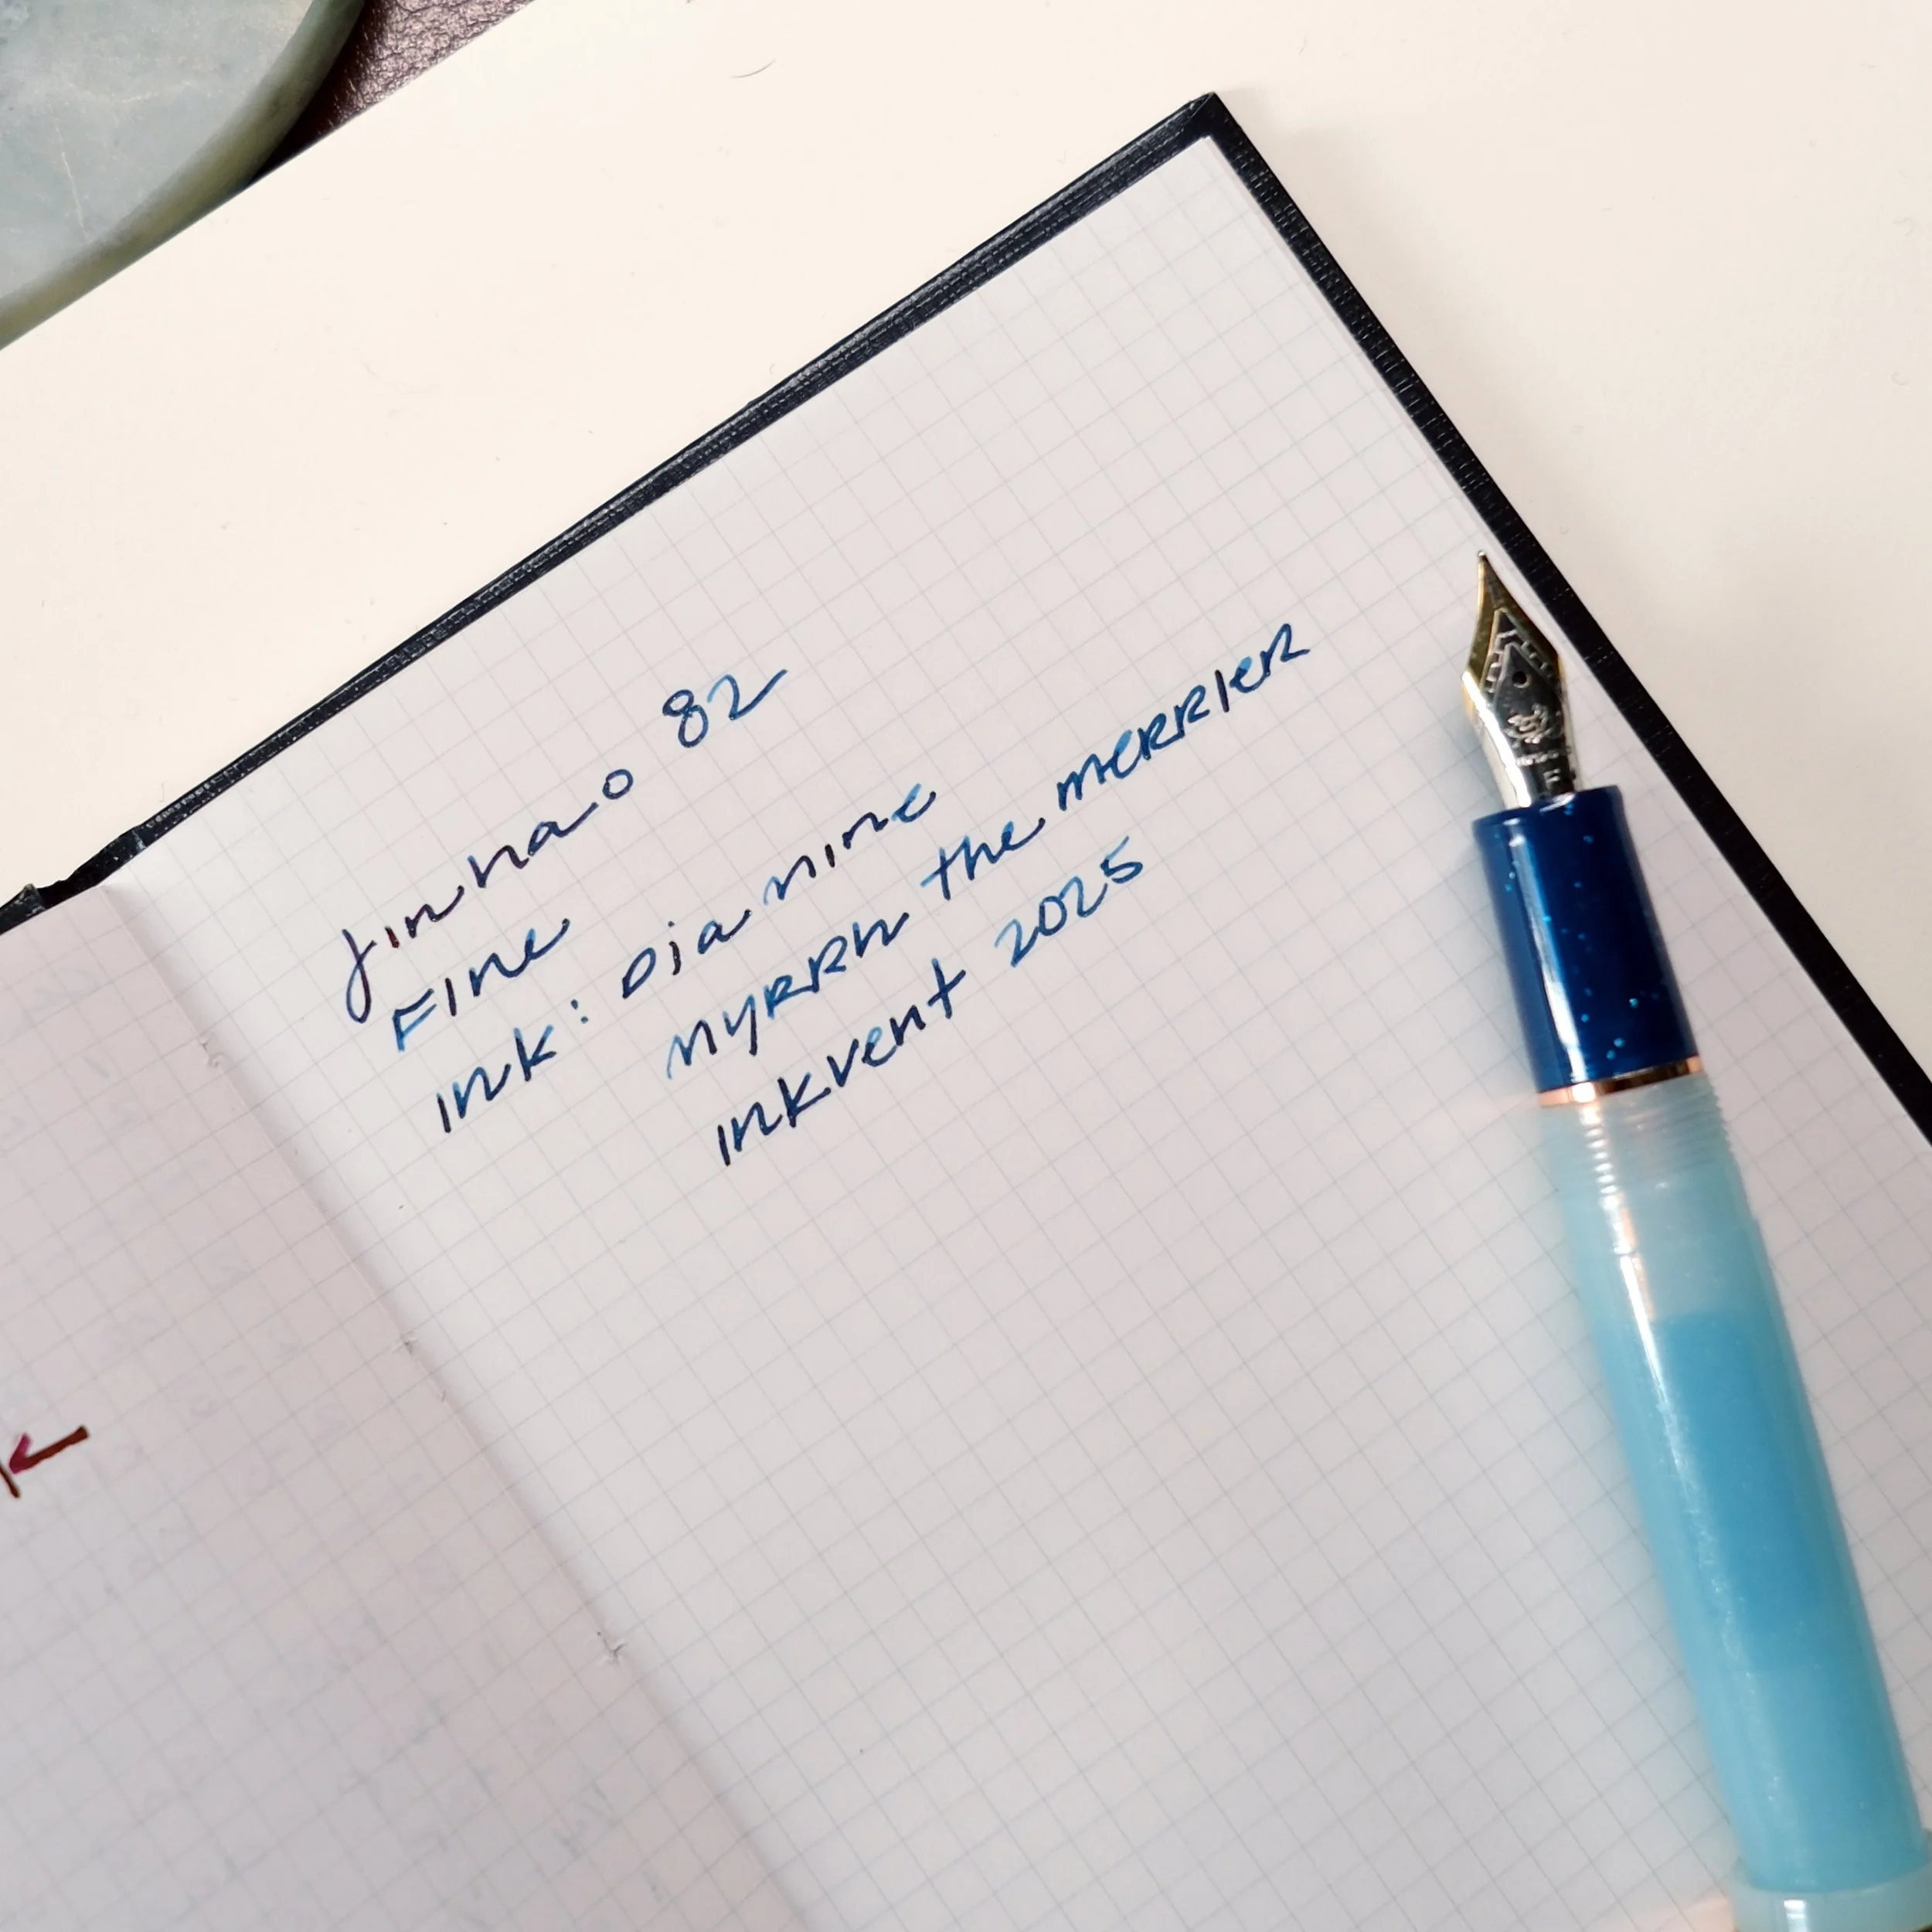 Jinhao 82
Fine
Ink: Diamine
Myrrh the merrier
Inkvent 2025
F